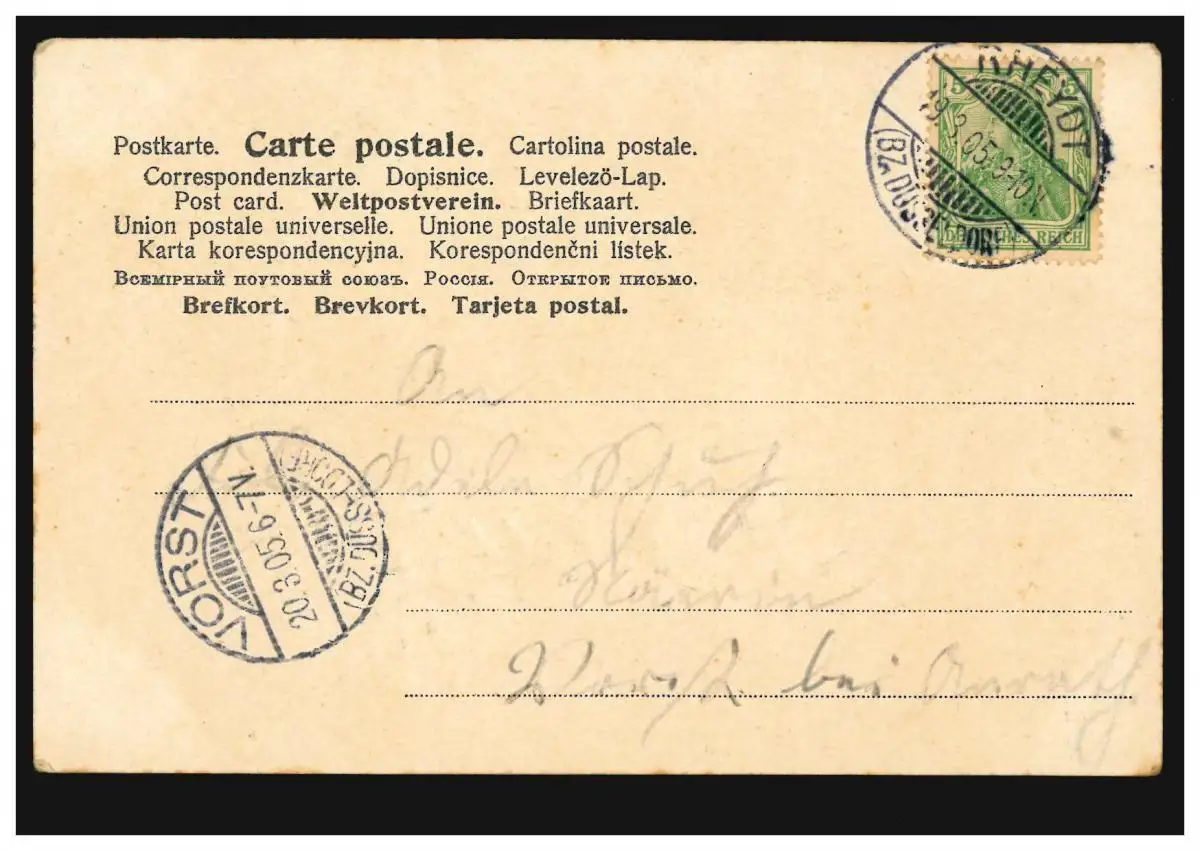 Postkarte. Carte postale. Cartolina postale.
Correspondenzkarte. Dopisnice. Levelezö-Lap.
Post card. Weltpostverein. Briefkaart.
Union postale universelle. Unione postale universale.
Karta korespondencyjna. Korespondenčni listek.
Всемірный поутовый союзъ. Россія. Открытое письмо.
Brefkort. Brevkort. Tarjeta postal.
RHEYDT
19.3.05.9-10V.
(BZ. DÜSSELDORF)
5 5
REICH
An
Adele Schuh
Vorst bei Anrath
VORST
20.3.05.6-7V.
(BZ. DÜSSELDORF)